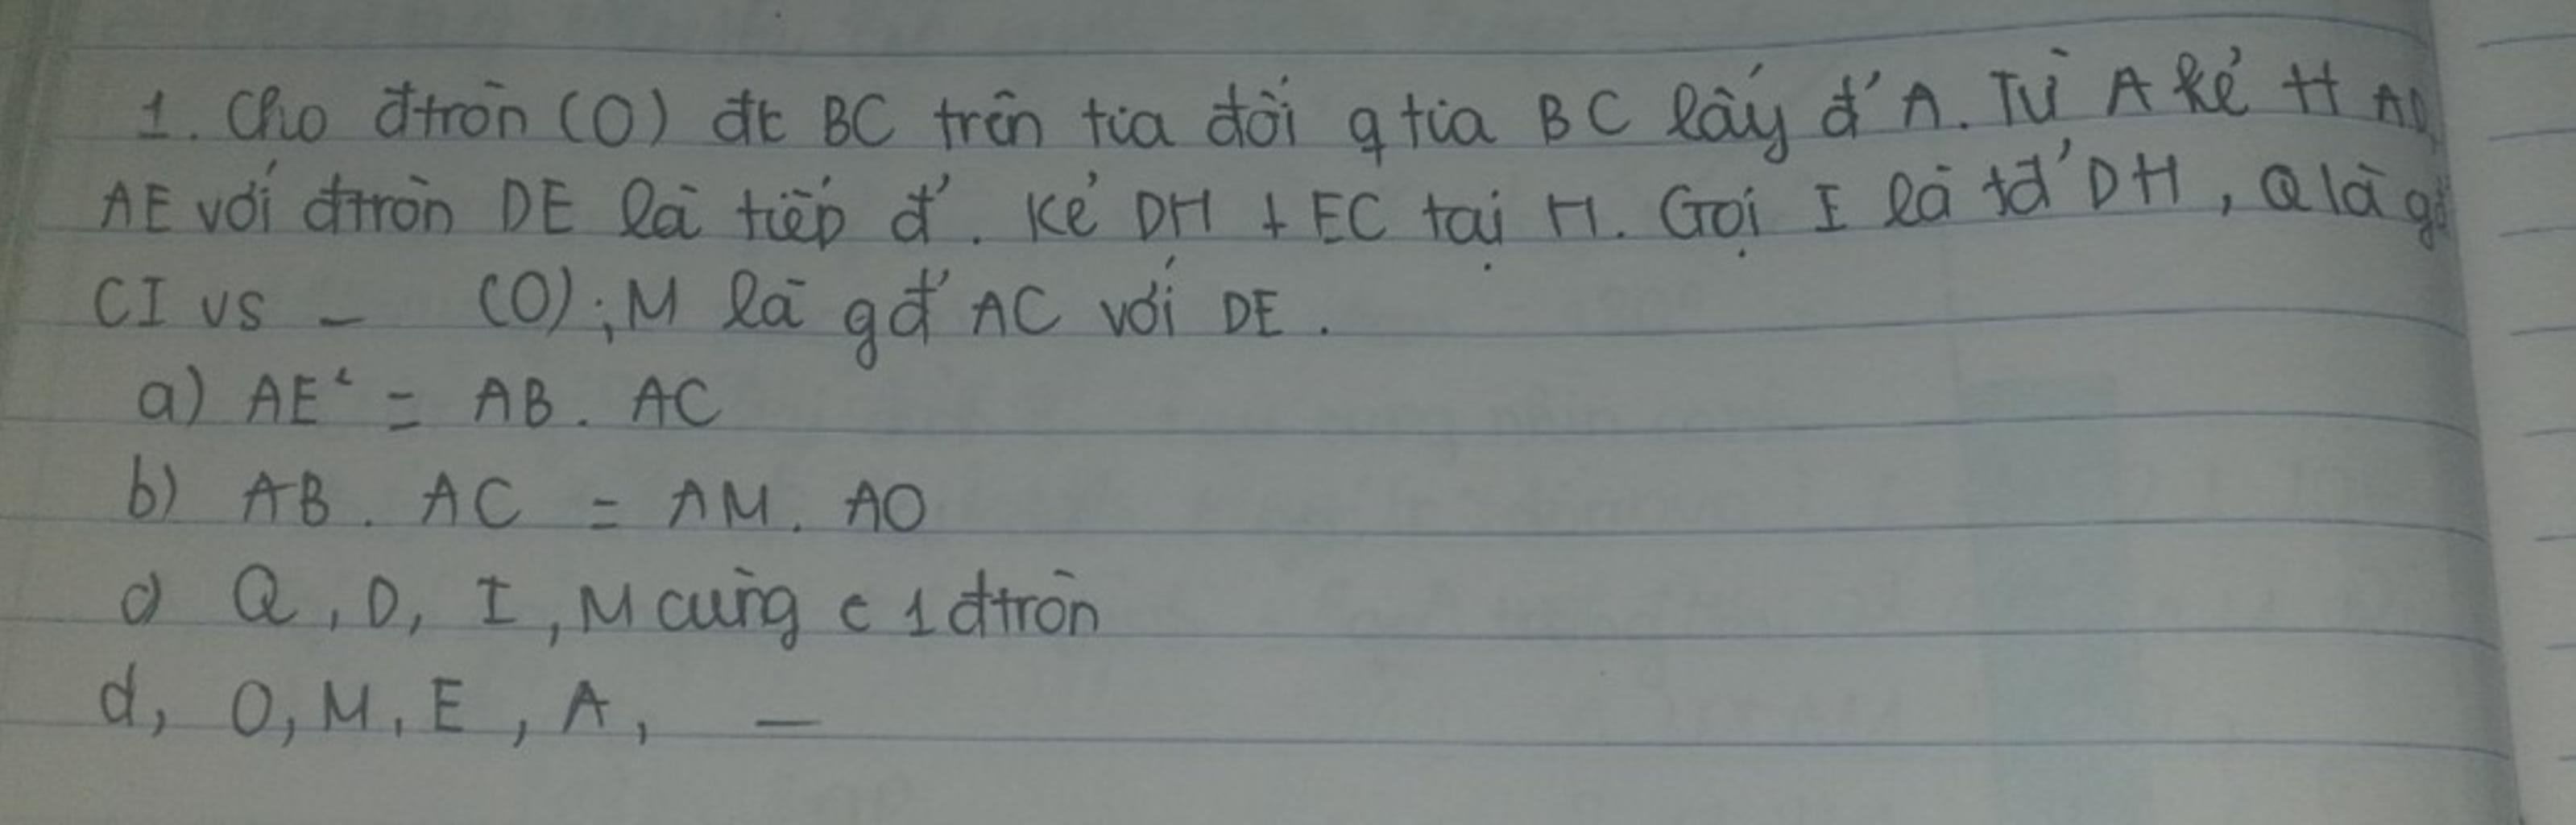 1. Cho đtròn (O) đk BC trên tia đối q tia BC lấy đ' A. Từ A kẻ tt AD
AE với đtròn DE là tiếp đ'. Kẻ DH ⊥ EC tại H. Gọi I là tđ' DH, Q là gđ
CI vs _ (O); M là gđ' AC với DE.
a) AE² = AB. AC
b) AB. AC = AM. AO
c) Q, D, I, M cùng ∈ 1 đtròn
d, O, M, E, A, _